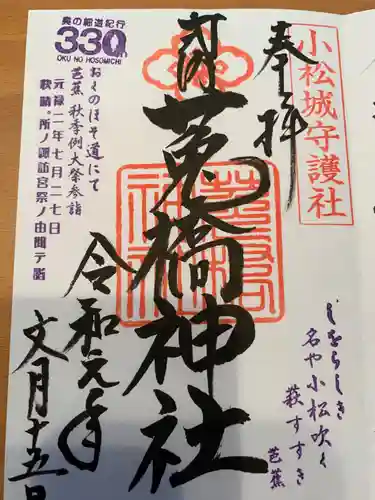 奉拝
小松城守護社
菟橋神社
令和元年
文月十五日
奥の細道紀行
330
OKU NO HOSOMICHI
おくのほそ道にて
芭蕉 秋季例大祭参詣
元禄二年七月二七日
快晴。所ノ諏訪宮祭ノ由聞テ詣
しをらしき
名や小松吹く
萩すすき
芭蕉